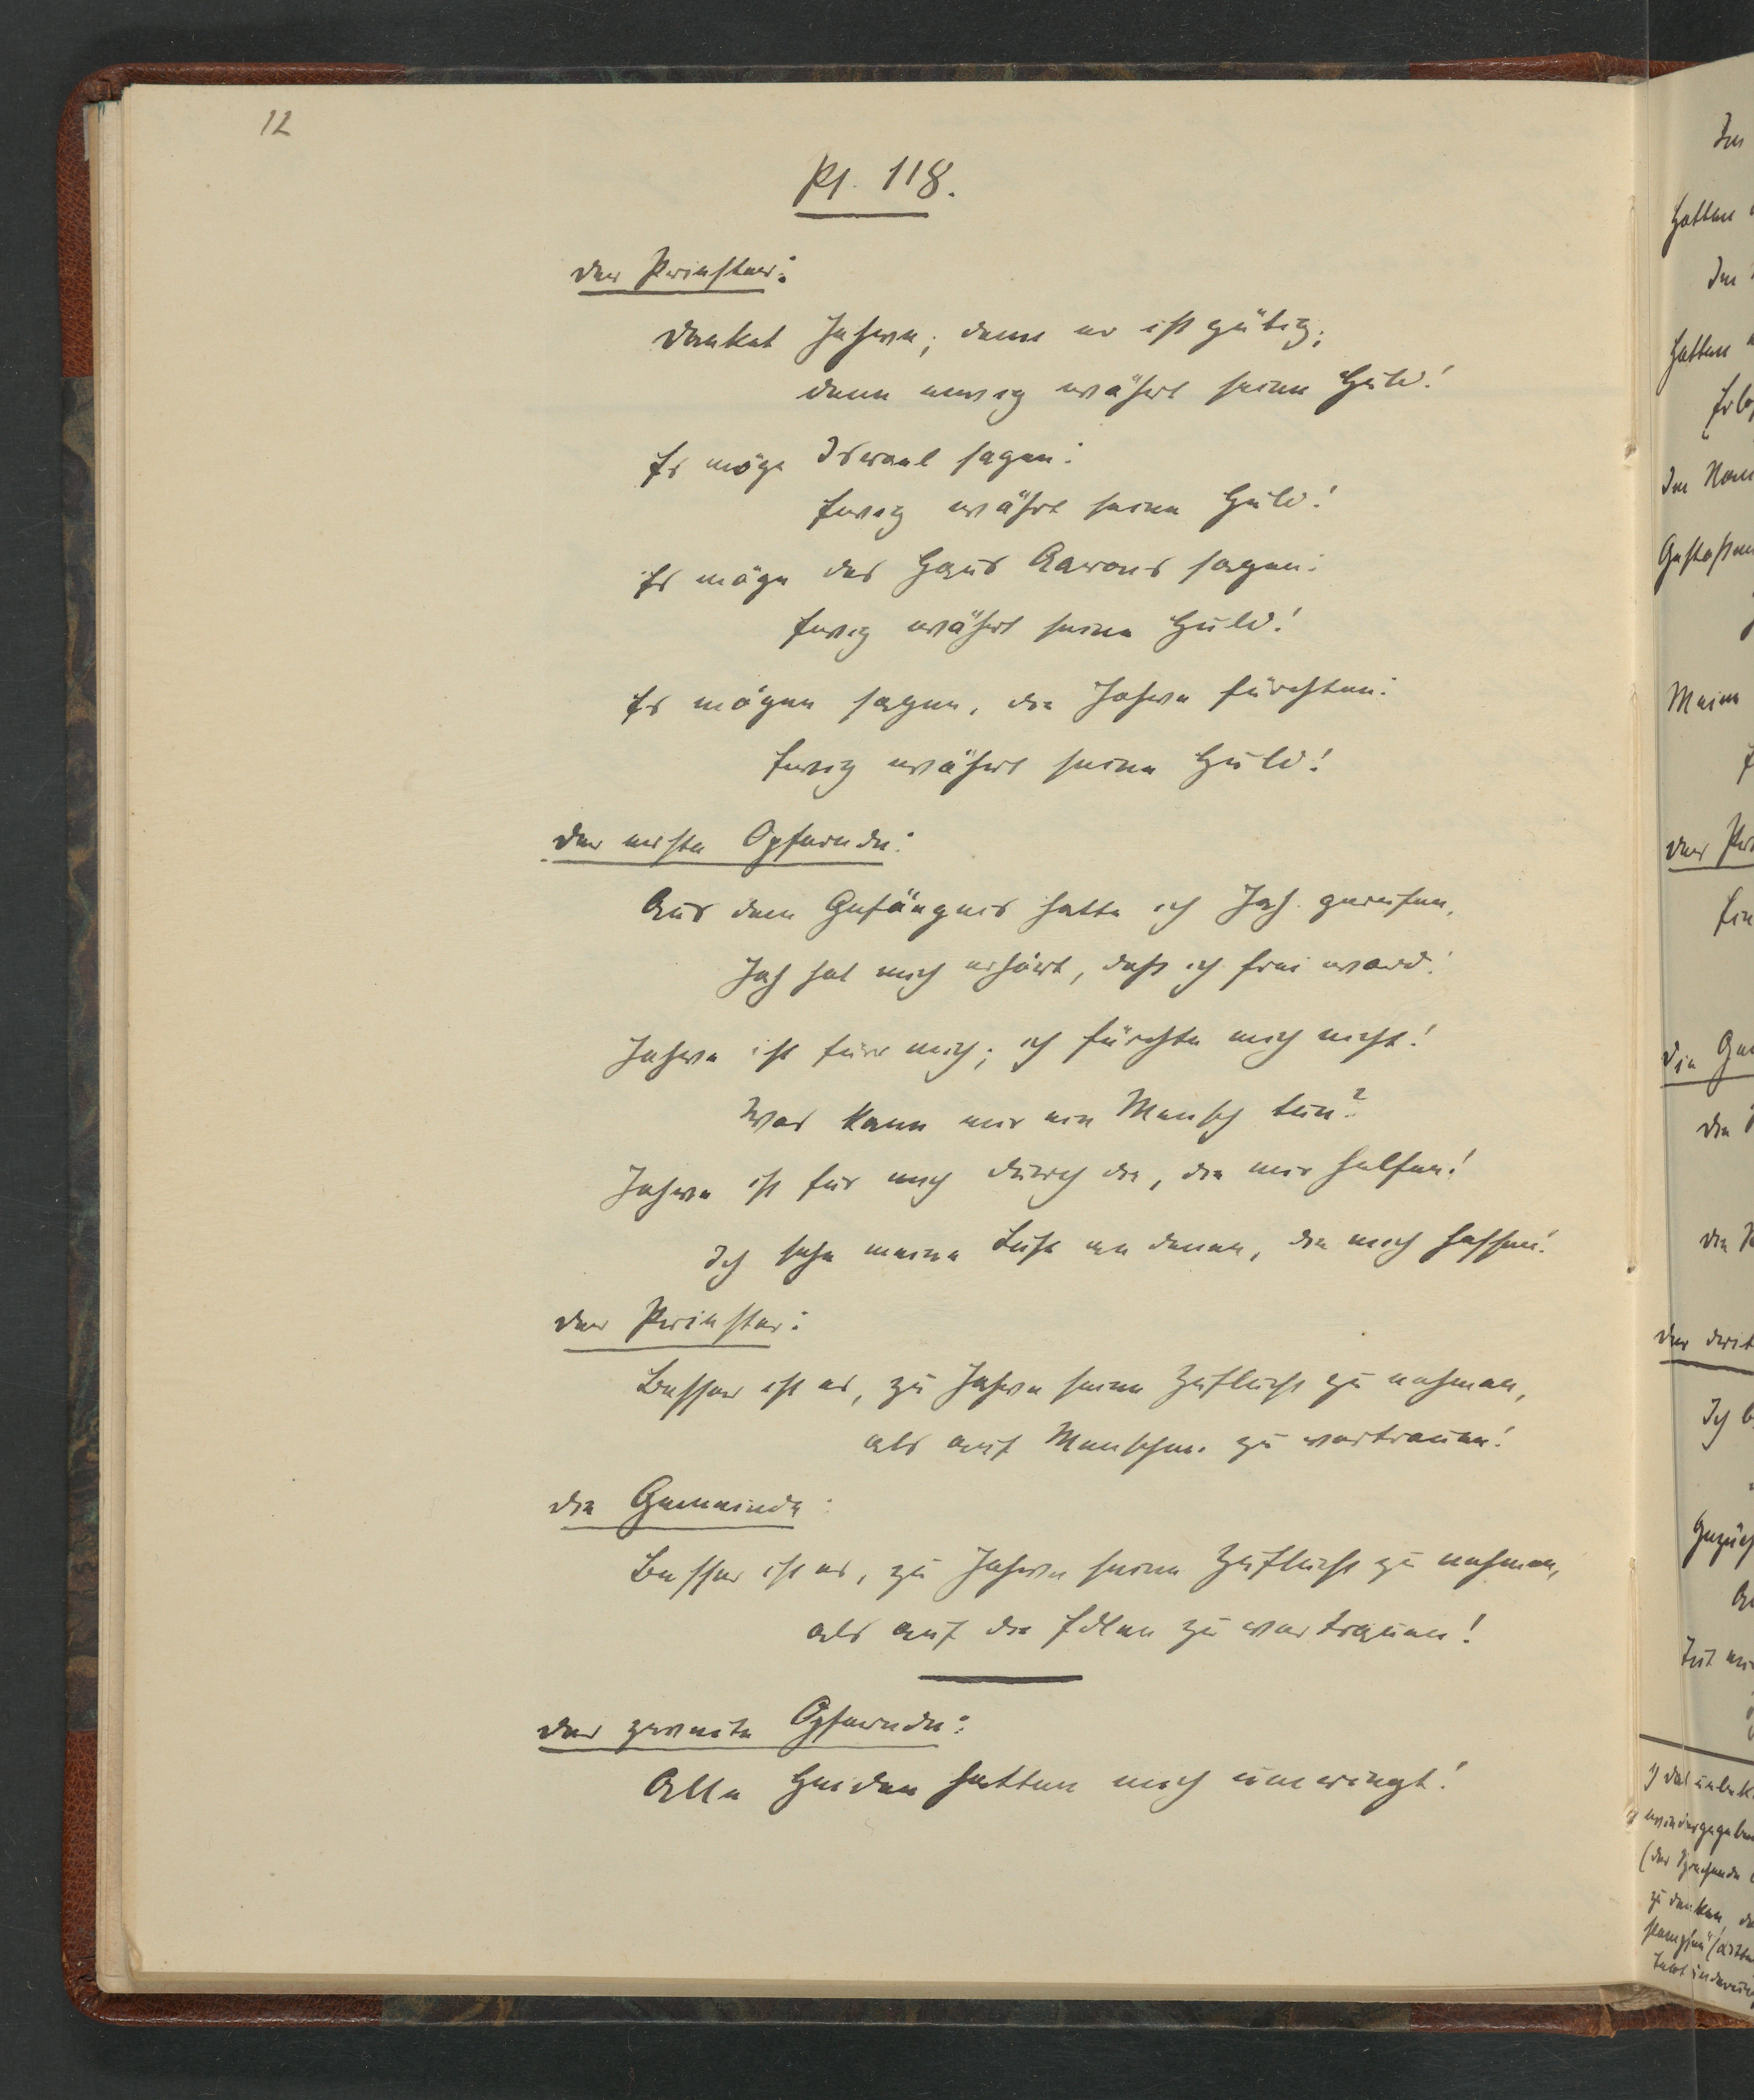 12
Ps. 118.
Der Priester:
Danket Jahwe; denn er ist gütig;
denn ewig währt seine Huld!
Es möge Israel sagen:
Ewig währt seine Huld!
Es möge das Haus Aarons sagen:
Ewig währt seine Huld!
Es mögen sagen, die Jahwe fürchten:
Ewig währt seine Huld!
Der erste Opfernde:
Aus dem Gefängnis hatte ich Jah gerufen,
Jah hat mich erhört, daß ich frei ward!
Jahwe ist für mich; ich fürchte mich nicht!
Was kann mir ein Mensch tun?
Jahwe ist für mich durch die, die mir helfen!
Ich sehe meine Lust an denen, die mich hassen!
Der Priester:
Besser ist es, zu Jahwe seine Zuflucht zu nehmen,
als auf Menschen zu vertrauen!
Die Gemeinde:
Besser ist es, zu Jahwe seine Zuflucht zu nehmen,
als auf die Edlen zu vertrauen!
Der zweite Opfernde:
Alle Heiden hatten mich umringt!
Im
Hatten
Im
Hatten
Im
Meine
Der
Ein
Die
Die
Die
Der
Ich
Tut
1) Das
(der Sprechende
zu danken,